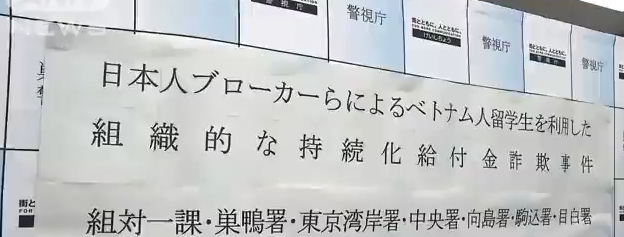 NEWS
警視庁
街とともに、人とともに。
けいしちょう
警視庁
街とともに、人とともに。
警視庁
警視庁
日本人ブローカーらによるベトナム人留学生を利用した
組織的な持続化給付金詐欺事件
組対一課・巣鴨署・東京湾岸署・中央署・向島署・駒込署・目白署